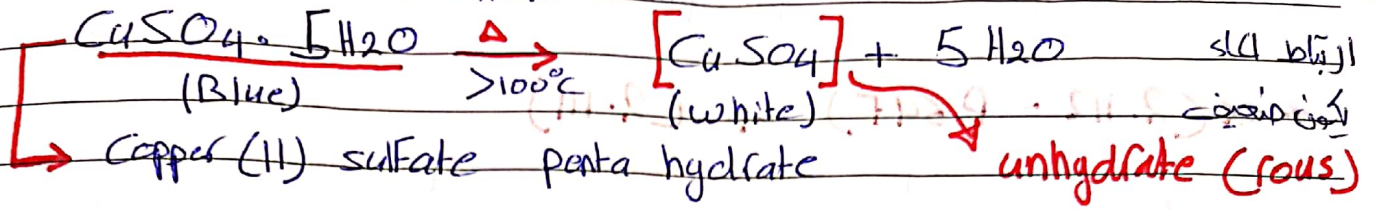 CuSO4. 5H2O Δ >100°C [CuSO4] + 5 H2O ارتباط الماء
(Blue) (white) يكون ضعيف
Copper (II) sulfate penta hydrate unhydrate (rous)